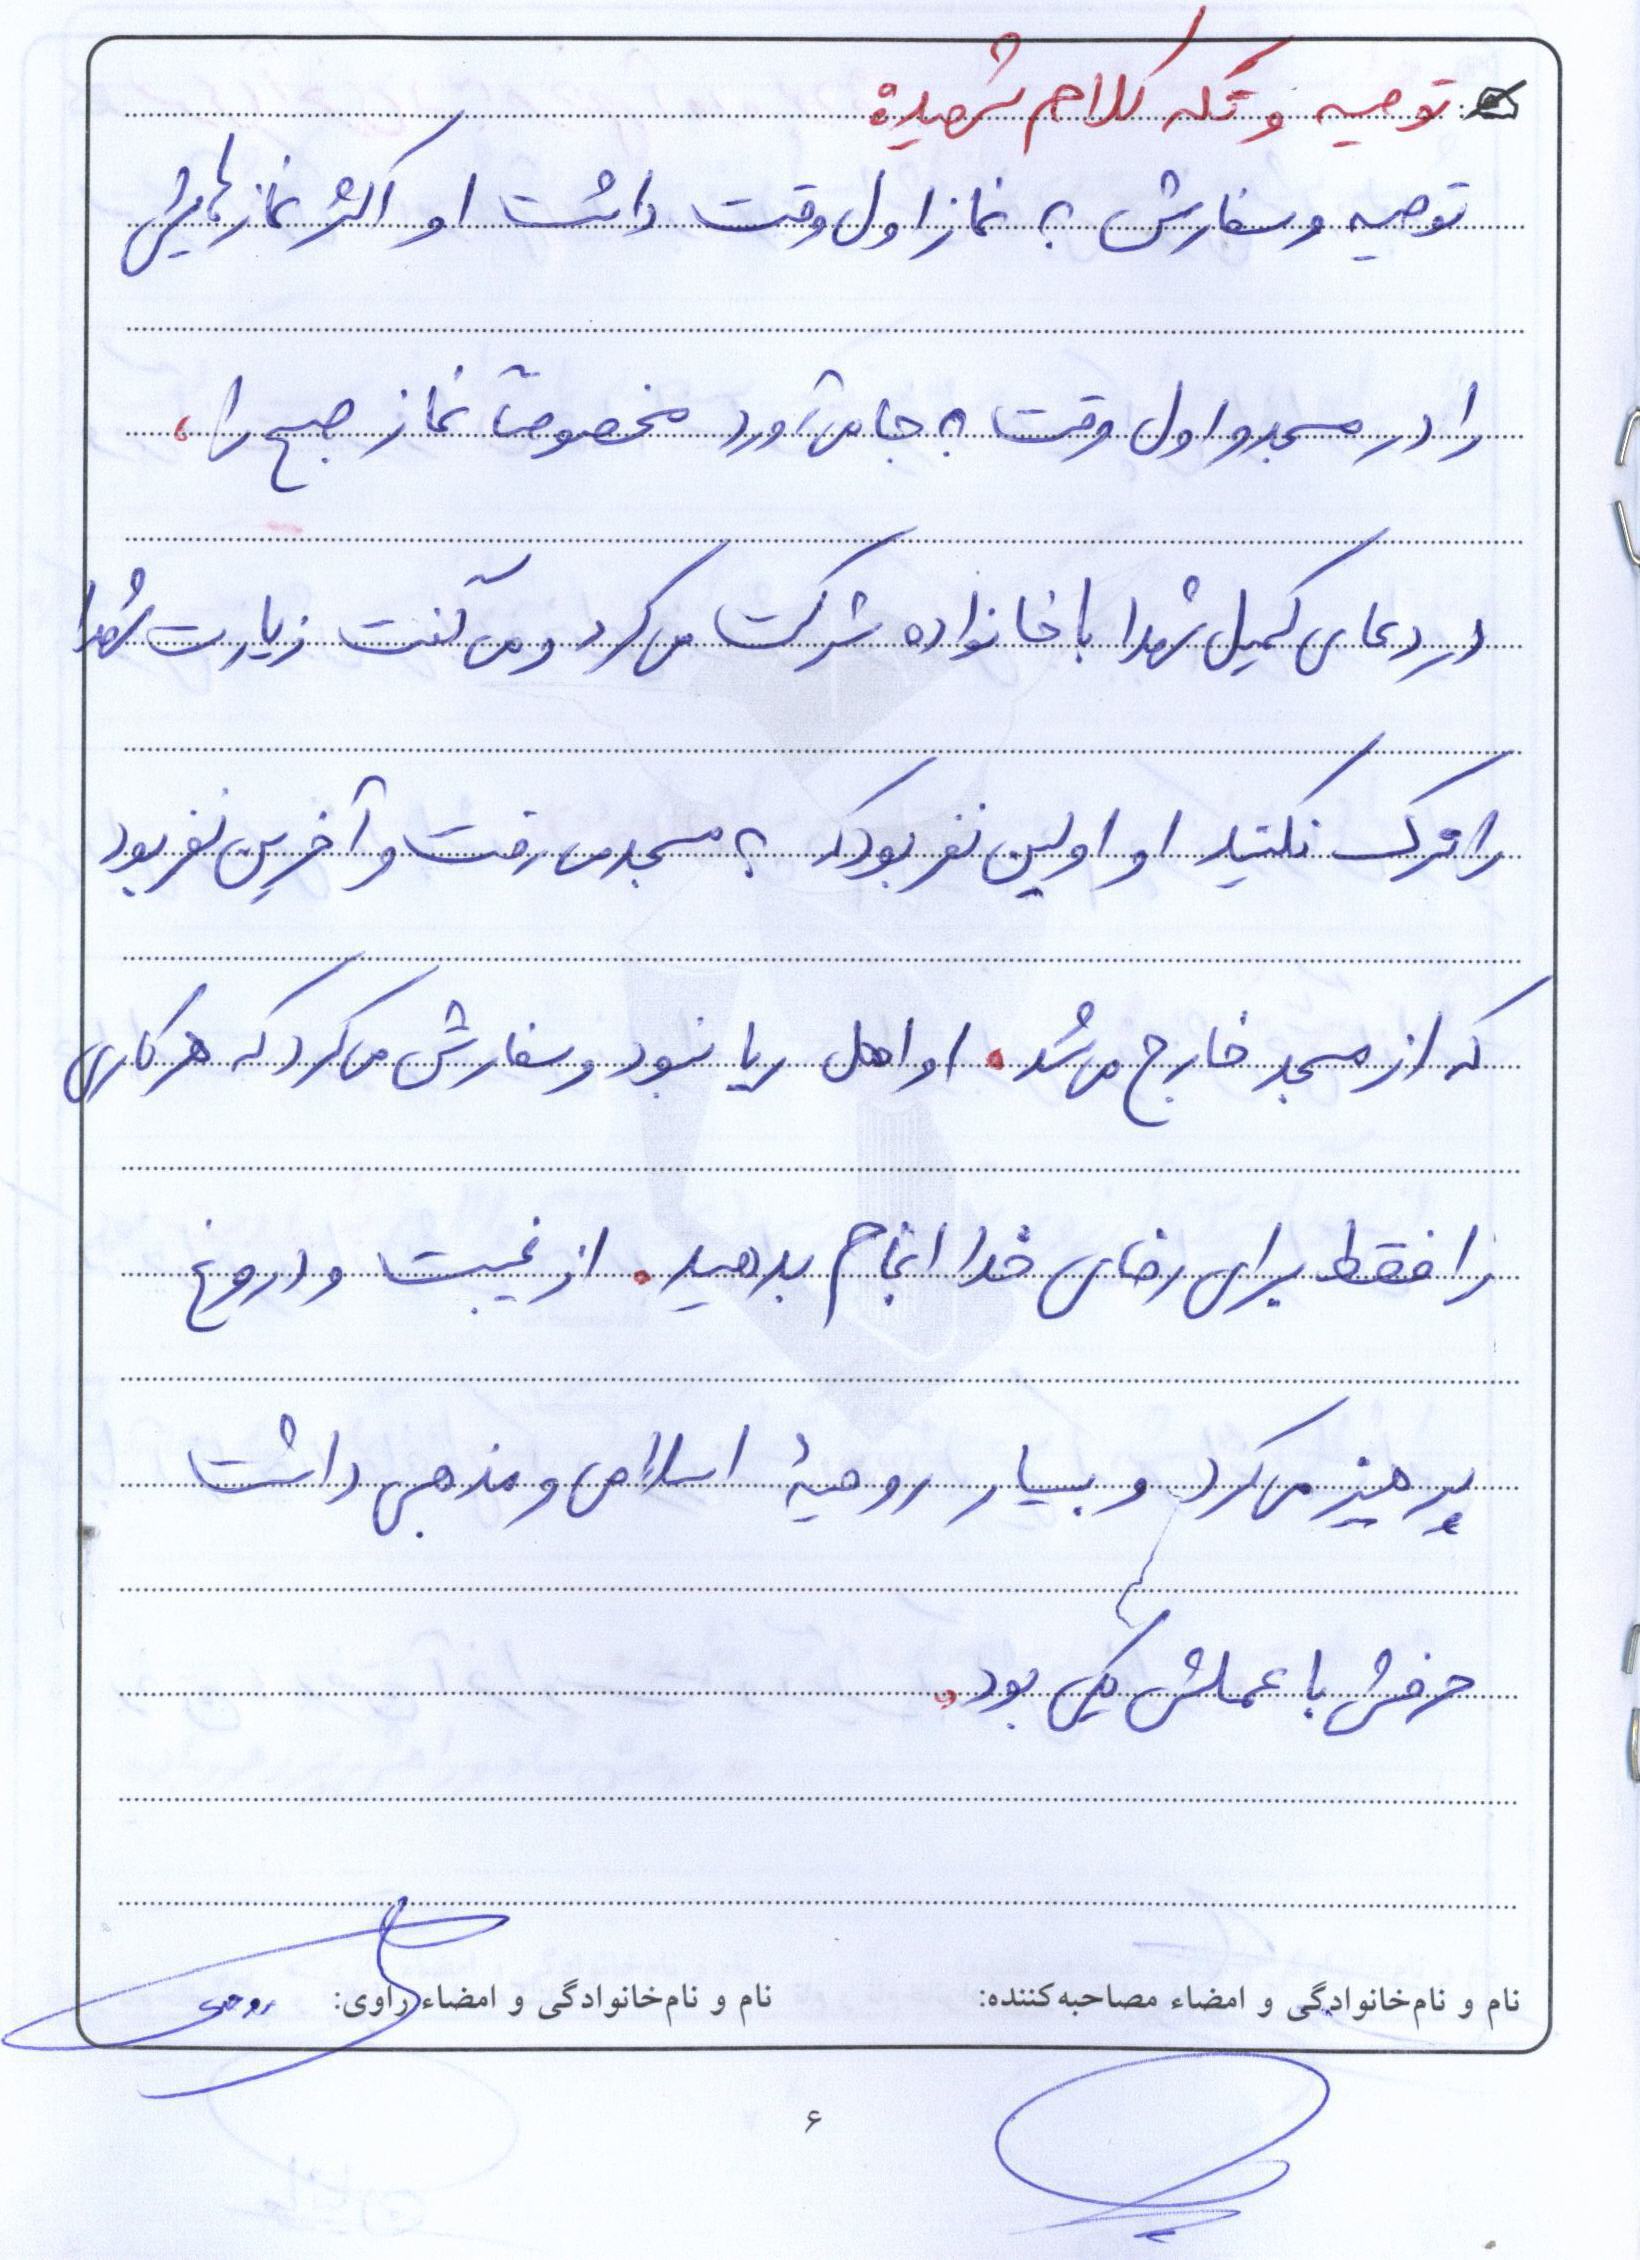 توصیه و تکه کلام شهیده
توصیه و سفارش به نماز اول وقت داشت او اکثر نمازهایش
را در مسجد و اول وقت به جا می‌آورد مخصوصاً نماز صبح را.
در دعای کمیل شهدا با خانواده شرکت می‌کرد و می‌گفت زیارت شهدا
را ترک نکنید او اولین نفر بود که به مسجد می‌رفت و آخرین نفر بود
که از مسجد خارج می‌شد. او اهل ریا نبود و سفارش می‌کرد که هر کاری
را فقط برای رضای خدا انجام بدهید. از غیبت و دروغ
پرهیز می‌کرد و بسیار روحیهٔ اسلامی و مذهبی داشت
حرفش با عملش یکی بود.
نام و نام‌خانوادگی و امضاء مصاحبه‌کننده: نام و نام‌خانوادگی و امضاء راوی:
۶